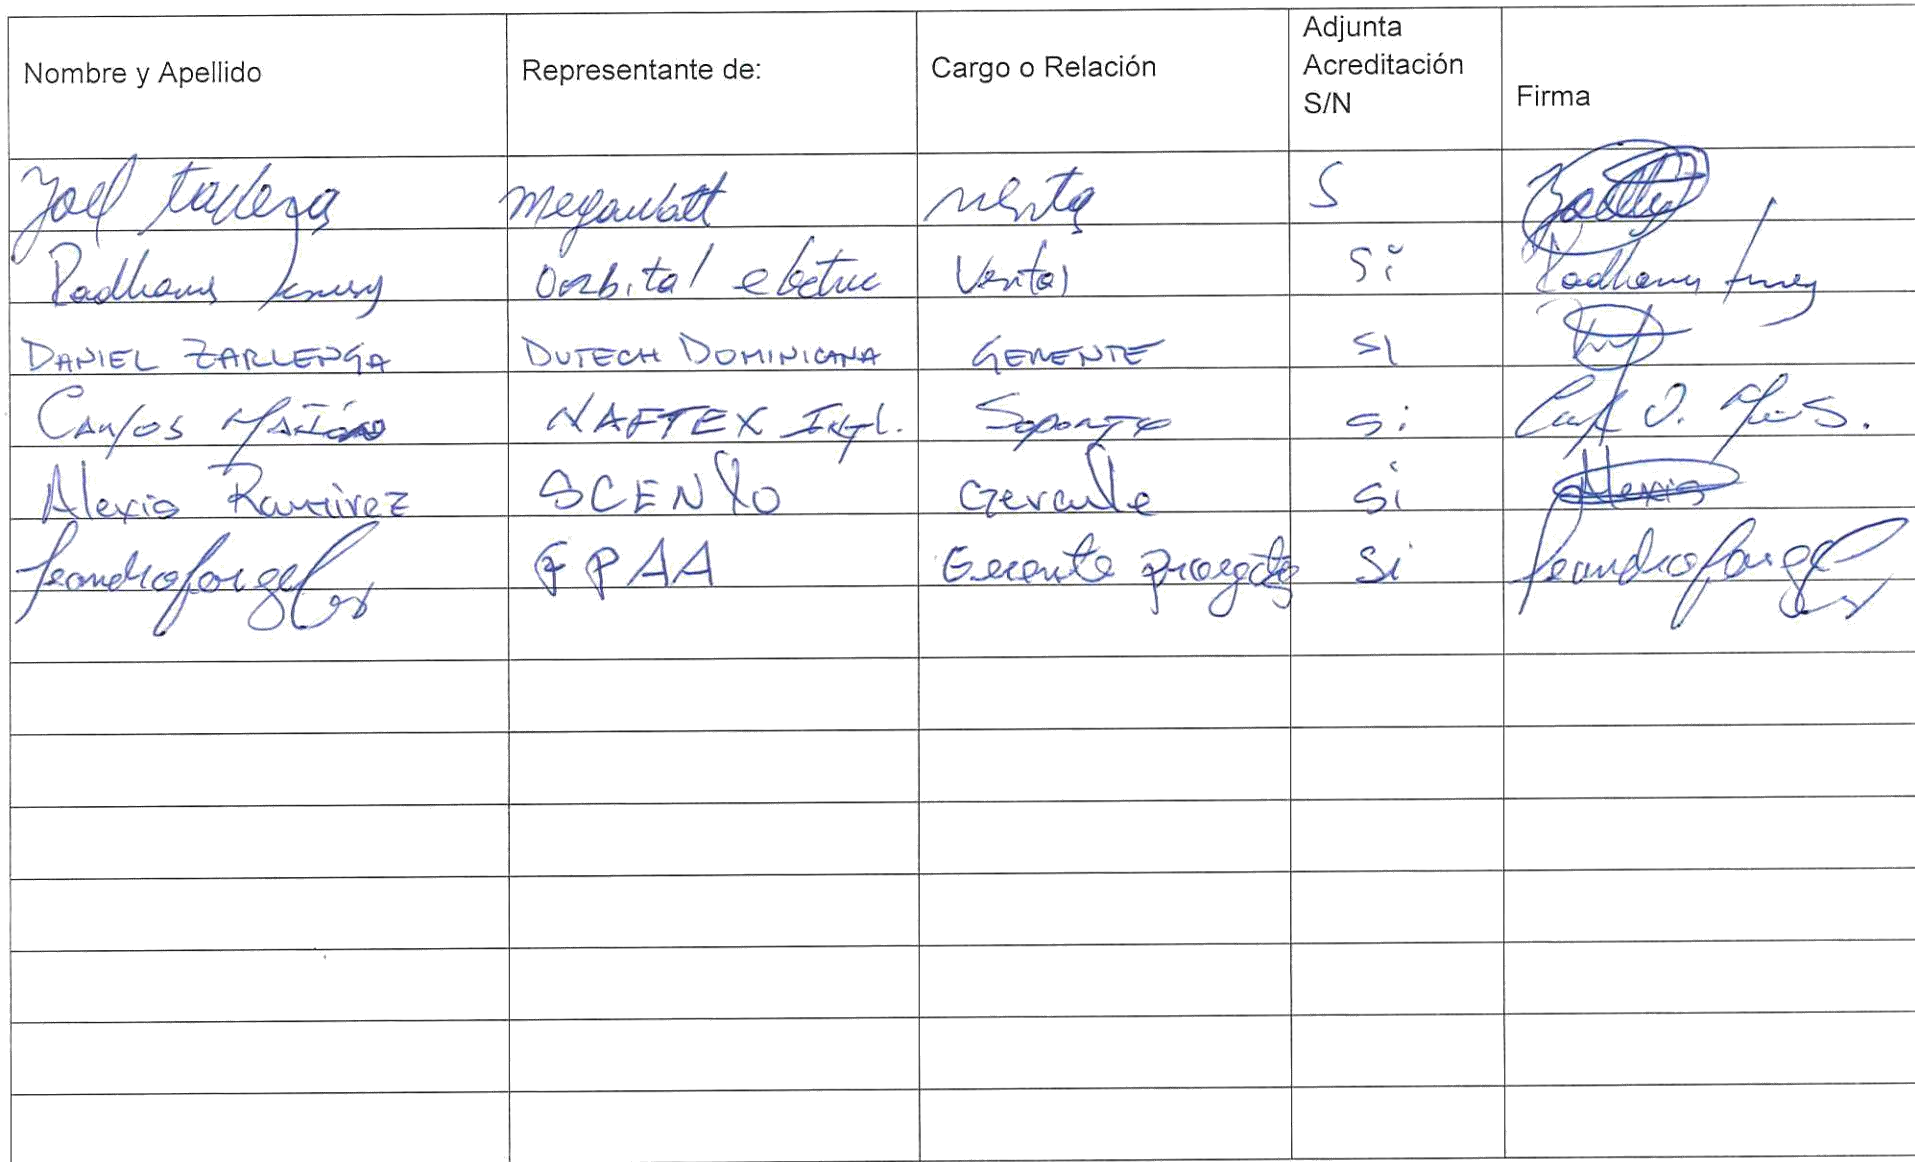 Nombre y Apellido Representante de: Cargo o Relación Adjunta Acreditación S/N Firma
Joel megawatt S
Radhams Oorbital electric Ventas Si Radhams
DANIEL ZARLENGA DUTECH DOMINICANA GERENTE SI
Carlos NAFTEX Intl. Soporte Si
Alexis Ramirez SCENXO Gerente Si Alexis
Leandro Jorge PAA Gerente Si Leandro Jorge